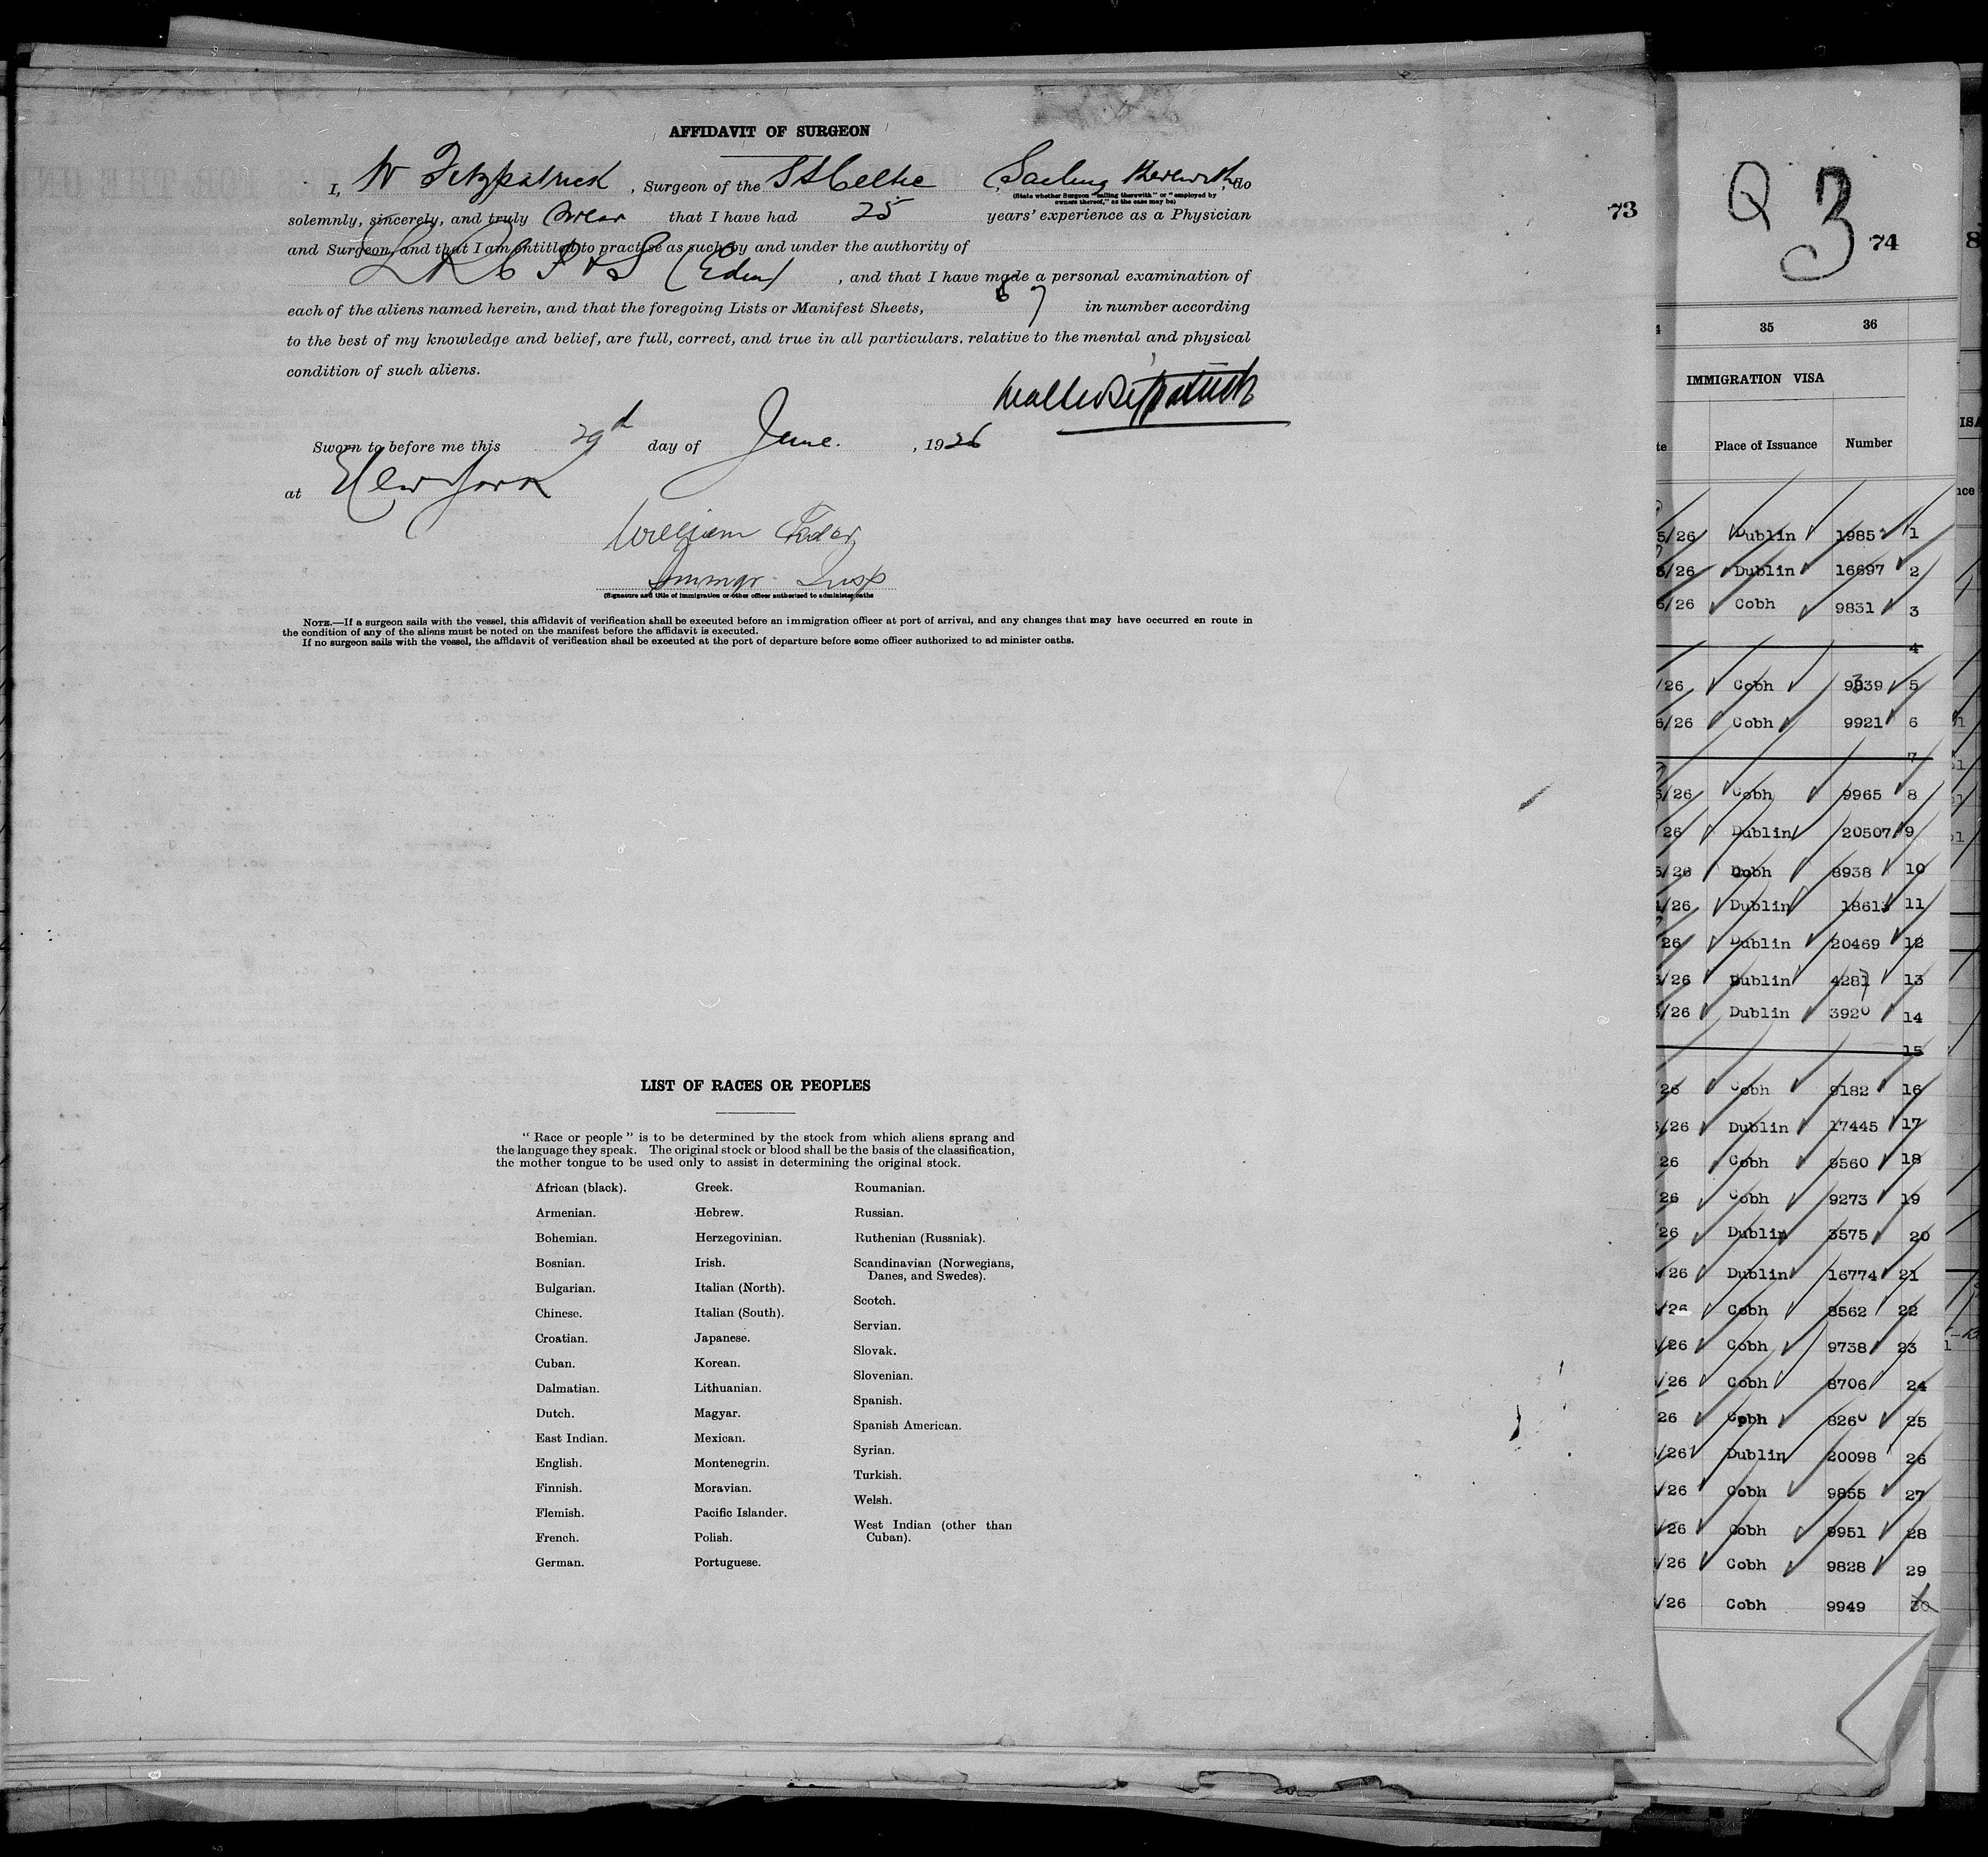 AFFIDAVIT OF SURGEON
I, W Fitzpatrick , Surgeon of the SS Celtic Sailing therewith, do
(State whether Surgeon "sailing therewith" or "employed by
owners thereof," as the case may be)
solemnly, sincerely, and truly swear that I have had 25 years' experience as a Physician
and Surgeon, and that I am entitled to practise as such by and under the authority of
L R C P & S (Edin) , and that I have made a personal examination of
each of the aliens named herein, and that the foregoing Lists or Manifest Sheets, 7 in number according
to the best of my knowledge and belief, are full, correct, and true in all particulars, relative to the mental and physical
condition of such aliens.
Sworn to before me this 29th day of June. , 1926
at New York
William
Immgr. Insp
(Signature and title of immigration or other officer authorized to administer oaths
NOTE.—If a surgeon sails with the vessel, this affidavit of verification shall be executed before an immigration officer at port of arrival, and any changes that may have occurred en route in
the condition of any of the aliens must be noted on the manifest before the affidavit is executed.
If no surgeon sails with the vessel, the affidavit of verification shall be executed at the port of departure before some officer authorized to ad minister oaths.
LIST OF RACES OR PEOPLES
"Race or people" is to be determined by the stock from which aliens sprang and
the language they speak. The original stock or blood shall be the basis of the classification,
the mother tongue to be used only to assist in determining the original stock.
African (black).
Armenian.
Bohemian.
Bosnian.
Bulgarian.
Chinese.
Croatian.
Cuban.
Dalmatian.
Dutch.
East Indian.
English.
Finnish.
Flemish.
French.
German.
Greek.
Hebrew.
Herzegovinian.
Irish.
Italian (North).
Italian (South).
Japanese.
Korean.
Lithuanian.
Magyar.
Mexican.
Montenegrin.
Moravian.
Pacific Islander.
Polish.
Portuguese.
Roumanian.
Russian.
Ruthenian (Russniak).
Scandinavian (Norwegians,
Danes, and Swedes).
Scotch.
Servian.
Slovak.
Slovenian.
Spanish.
Spanish American.
Syrian.
Turkish.
Welsh.
West Indian (other than
Cuban).
73
Q 3
74
35 36
IMMIGRATION VISA
Place of Issuance Number
5/26 Dublin 1985 1
/26 Dublin 16697 2
/26 Cobh 9831 3
4
/26 Cobh 9339 5
6/26 Cobh 9921 6
7
/26 Cobh 9965 8
/26 Dublin 20507 9
5/26 Cobh 8938 10
/26 Dublin 18613 11
26 Dublin 20469 12
/26 Dublin 4287 13
/26 Dublin 3920 14
15
26 Cobh 9182 16
/26 Dublin 17445 17
26 Cobh 9560 18
26 Cobh 9273 19
/26 Dublin 3575 20
/26 Dublin 16774 21
/26 Cobh 8562 22
/26 Cobh 9738 23
/26 Cobh 8706 24
26 Cobh 8260 25
/26 Dublin 20098 26
/26 Cobh 9855 27
/26 Cobh 9951 28
/26 Cobh 9828 29
/26 Cobh 9949 30